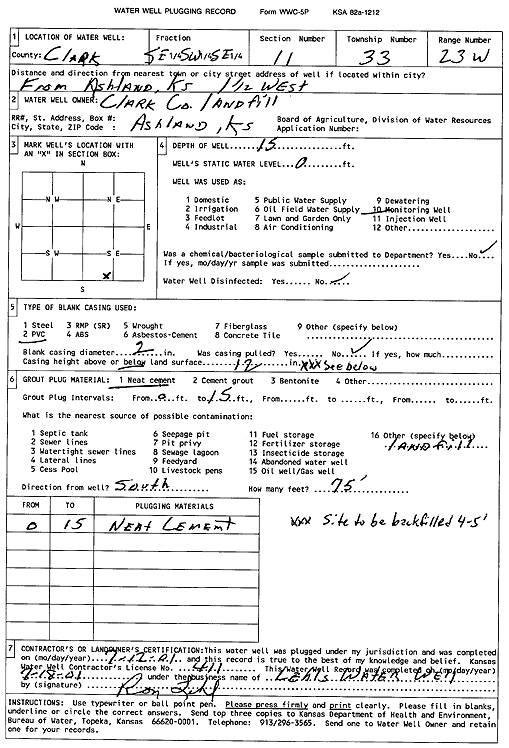 WATER WELL PLUGGING RECORD Form WWC-5P KSA 82a-1212
1 LOCATION OF WATER WELL: Fraction Section Number Township Number Range Number
County: Clark SE 1/4 SW 1/4 SE 1/4 11 33 23 W
Distance and direction from nearest town or city street address of well if located within city?
From Ashland, Ks 1 1/2 West
2 WATER WELL OWNER: Clark Co. landfill
RR#, St. Address, Box #: Board of Agriculture, Division of Water Resources
City, State, ZIP Code : Ashland, Ks Application Number:
3 MARK WELL'S LOCATION WITH AN "X" IN SECTION BOX:
N
N W N E
W E
S W S E
X
S
4 DEPTH OF WELL.....15......ft.
WELL'S STATIC WATER LEVEL..0....ft.
WELL WAS USED AS:
1 Domestic 5 Public Water Supply 9 Dewatering
2 Irrigation 6 Oil Field Water Supply 10 Monitoring Well
3 Feedlot 7 Lawn and Garden Only 11 Injection Well
4 Industrial 8 Air Conditioning 12 Other..........
Was a chemical/bacteriological sample submitted to Department? Yes....No.✓..
If yes, mo/day/yr sample was submitted....................
Water Well Disinfected: Yes..... No.✓..
5 TYPE OF BLANK CASING USED:
1 Steel 3 RMP (SR) 5 Wrought 7 Fiberglass 9 Other (specify below)
2 PVC 4 ABS 6 Asbestos-Cement 8 Concrete Tile ....................
Blank casing diameter...2...in. Was casing pulled? Yes..... No.✓... If yes, how much..........
Casing height above or below land surface.......12........in. XXX See below
6 GROUT PLUG MATERIAL: 1 Neat cement 2 Cement grout 3 Bentonite 4 Other..............
Grout Plug Intervals: From..0..ft. to.15.ft., From.....ft. to .....ft., From..... to.....ft.
What is the nearest source of possible contamination:
1 Septic tank 6 Seepage pit 11 Fuel storage 16 Other (specify below)
2 Sewer lines 7 Pit privy 12 Fertilizer storage landfill
3 Watertight sewer lines 8 Sewage lagoon 13 Insecticide storage
4 Lateral lines 9 Feedyard 14 Abandoned water well
5 Cess Pool 10 Livestock pens 15 Oil well/Gas well
Direction from well? South How many feet? ....75'......
FROM TO PLUGGING MATERIALS
0 15 Neat Cement
XXX Site to be backfilled 4-5'
7 CONTRACTOR'S OR LANDOWNER'S CERTIFICATION:This water well was plugged under my jurisdiction and was completed
on (mo/day/year)....7-12-01.... and this record is true to the best of my knowledge and belief. Kansas
Water Well Contractor's License No....411..... This Water Well Record was completed on (mo/day/year)
7-18-01 under the business name of Lehls Water Well
by (signature)
INSTRUCTIONS: Use typewriter or ball point pen. Please press firmly and print clearly. Please fill in blanks,
underline or circle the correct answers. Send top three copies to Kansas Department of Health and Environment,
Bureau of Water, Topeka, Kansas 66620-0001. Telephone: 913/296-3565. Send one to Water Well Owner and retain
one for your records.